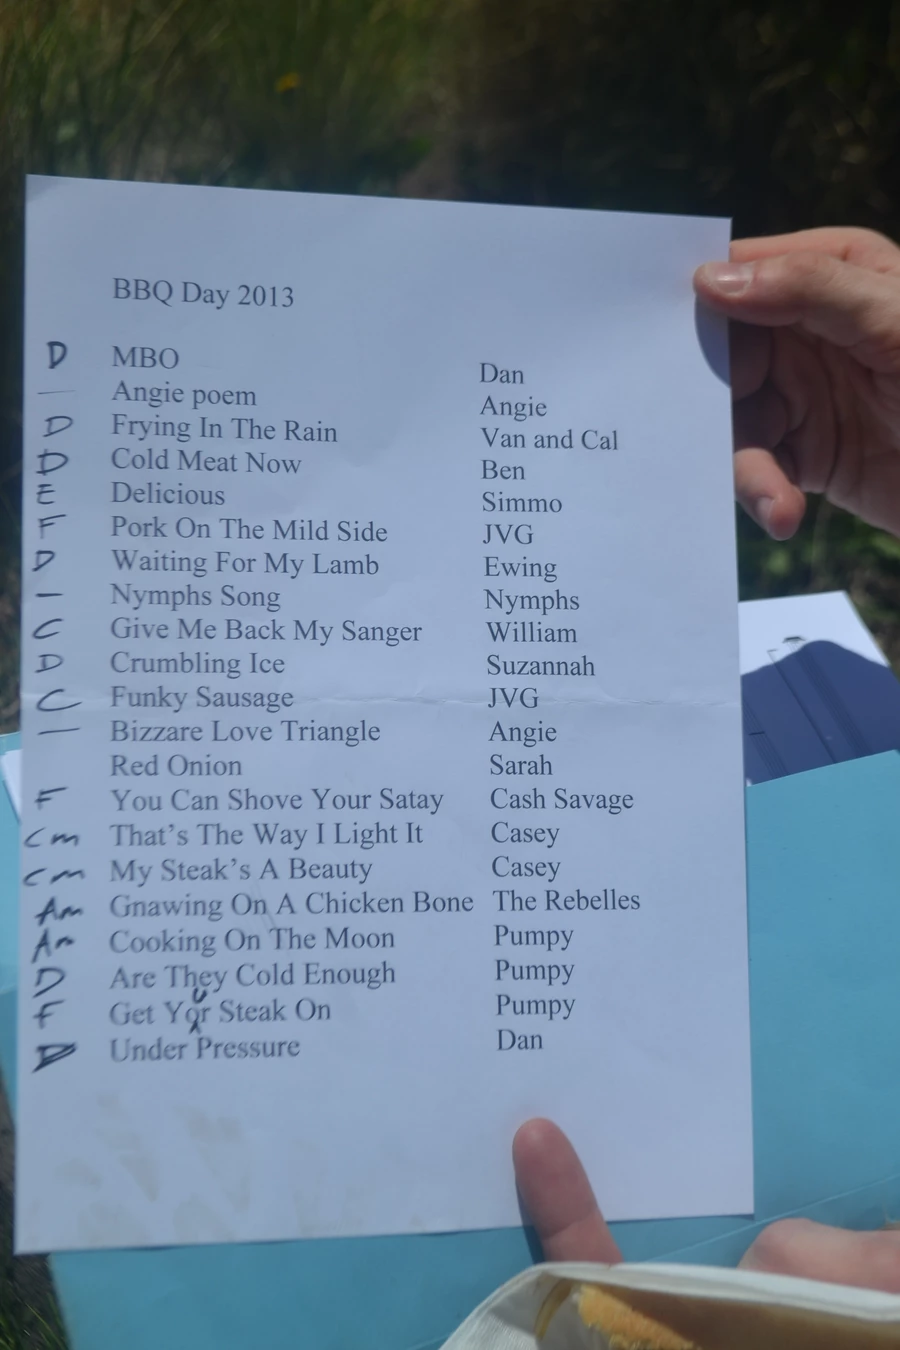 BBQ Day 2013
D MBO Dan
— Angie poem Angie
D Frying In The Rain Van and Cal
D Cold Meat Now Ben
E Delicious Simmo
F Pork On The Mild Side JVG
D Waiting For My Lamb Ewing
— Nymphs Song Nymphs
C Give Me Back My Sanger William
D Crumbling Ice Suzannah
C Funky Sausage JVG
— Bizzare Love Triangle Angie
Red Onion Sarah
F You Can Shove Your Satay Cash Savage
Cm That's The Way I Light It Casey
Cm My Steak's A Beauty Casey
Am Gnawing On A Chicken Bone The Rebelles
Am Cooking On The Moon Pumpy
D Are They Cold Enough Pumpy
F Get Your Steak On Pumpy
D Under Pressure Dan